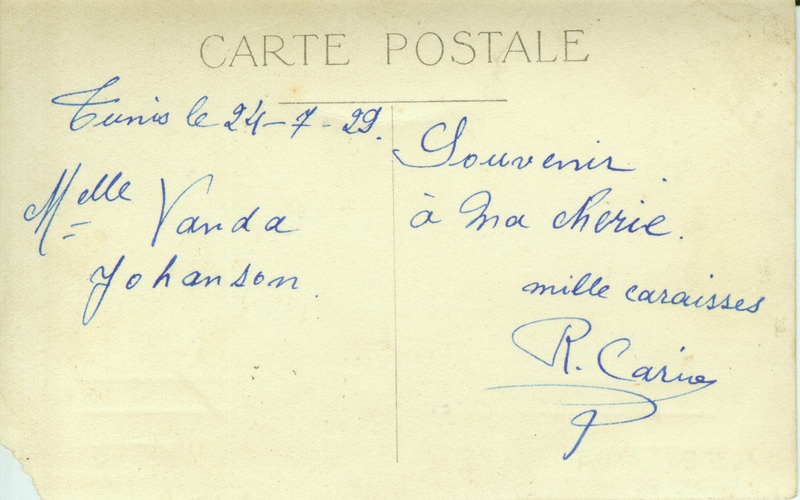 CARTE POSTALE
Tunis le 24-7-29.
Melle Vanda
Johanson.
Souvenir
à ma cherie.
mille caraisses
R. Carino